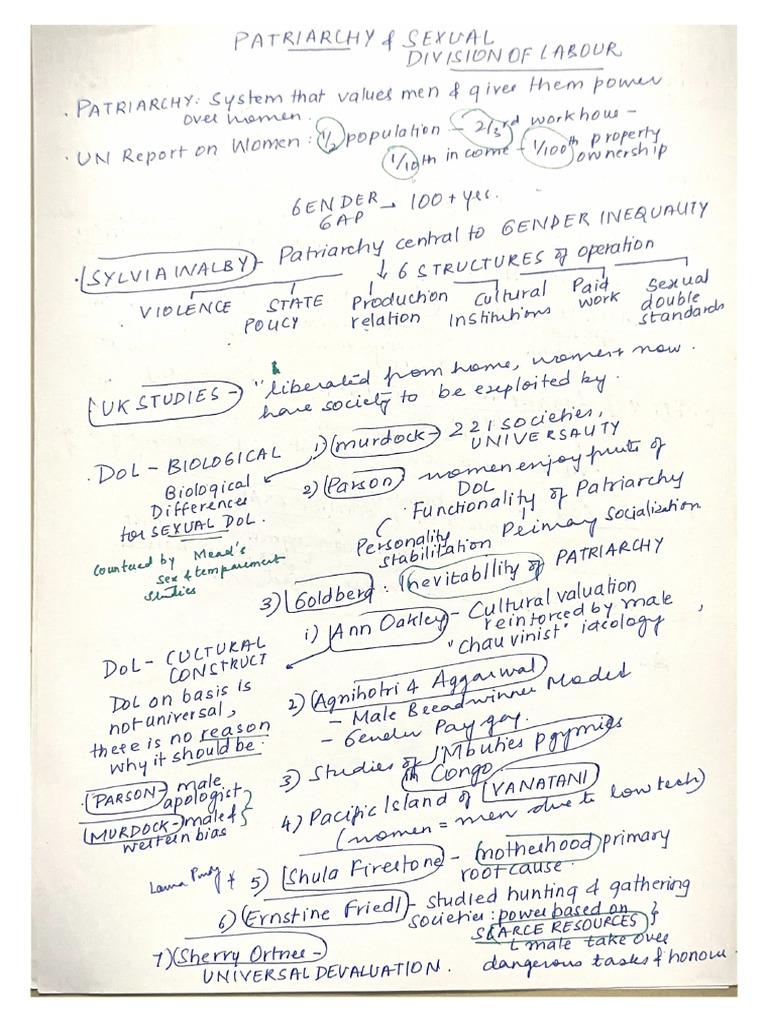 PATRIARCHY & SEXUAL
DIVISION OF LABOUR
· PATRIARCHY: System that values men & gives them power
over women.
· UN Report on Women: 1/2 population – 2/3rd work hous –
1/10th in come – 1/100th property
ownership
GENDER GAP → 100 + yrs.
· SYLVIA WALBY – Patriarchy central to GENDER INEQUALITY
↓ 6 STRUCTURES of operation
VIOLENCE STATE POLICY Production relation Cultural Institutions Paid work Sexual double standards
UK STUDIES – "liberated from home, women now
have society to be exploited by.
· DOL – BIOLOGICAL
Biological
Differences
for SEXUAL DOL.
countued by Mead's
sex & temparement
studies
1) Murdock – 221 societies,
UNIVERSALITY
2) Parson women enjoy fruits of
DOL
· Functionality of Patriarchy
Personality stabilitation Primary Socialization
3) Goldberg: Inevitability of PATRIARCHY
DOL – CULTURAL
CONSTRUCT
DOL on basis is
not universal,
there is no reason
why it should be.
· PARSON – male
apologist
MURDOCK – male &
western bias
1) Ann Oakley – Cultural valuation
reinforced by male
"chauvinist" ideology
2) Agnihotri & Aggarwal
– Male Breadwinner Model
– Gender Pay gap.
3) Studies of Mbuties pgymies
in Congo
4) Pacific Island of VANATANI
(women = men due to low tech)
* 5) Shula Firestone – motherhood primary
root cause.
6) Ernstine Friedl – studied hunting & gathering
societies: power based on
SCARCE RESOURCES
male take over
dangerous tasks & honour
7) Sherry Ortner –
UNIVERSAL DEVALUATION.